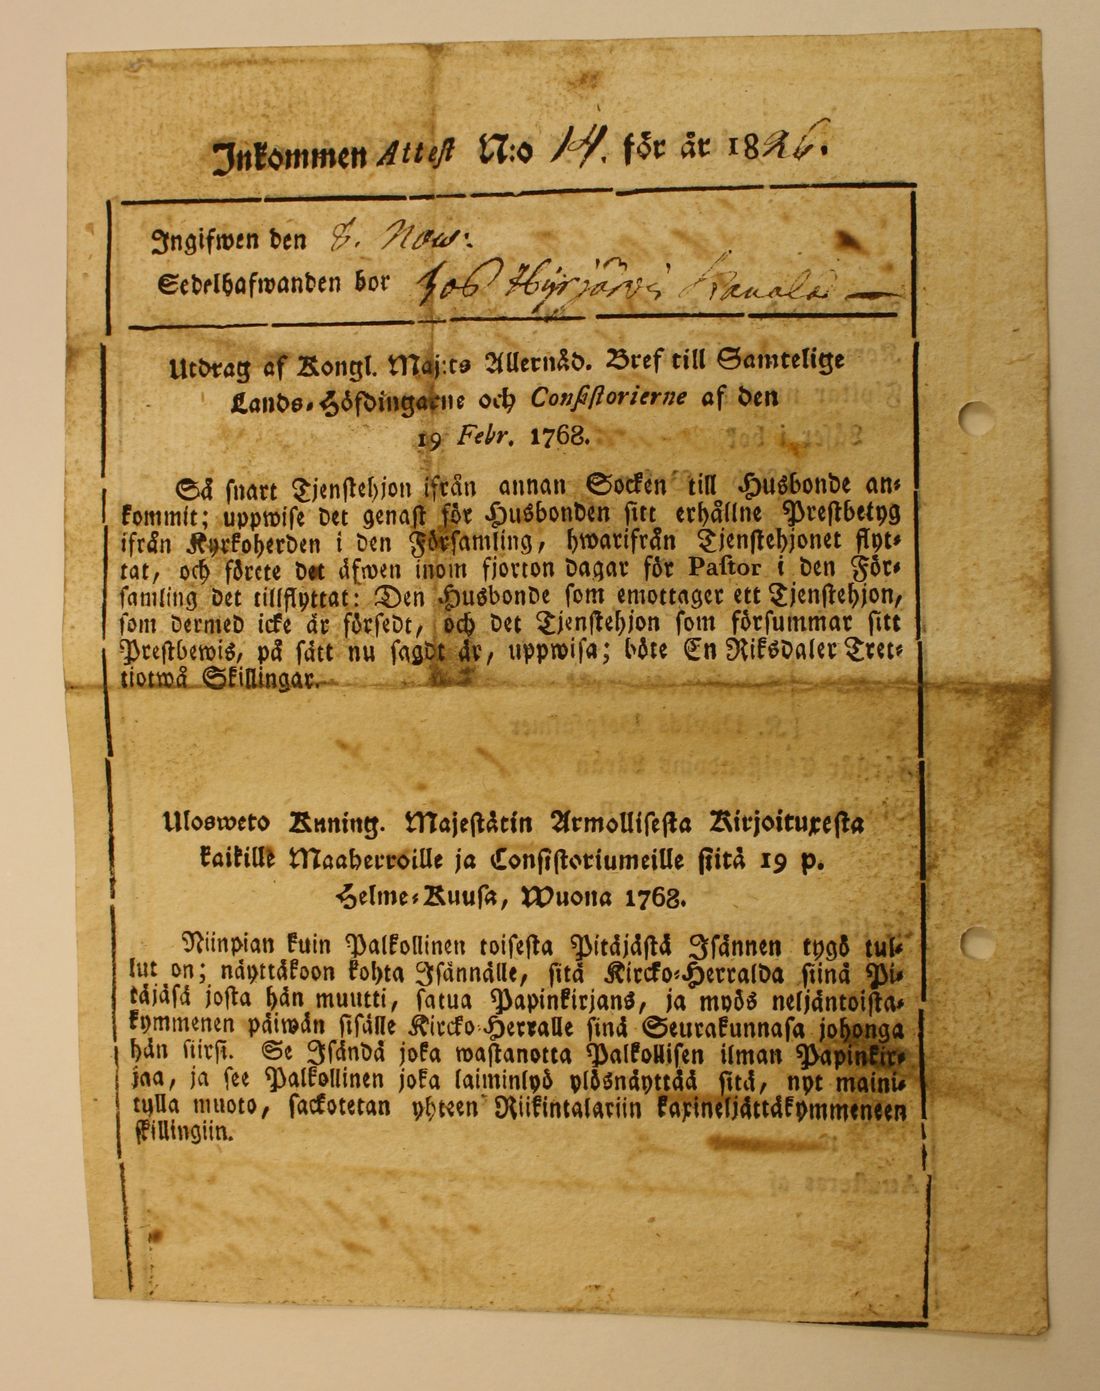 Inkommen Attest N:o 14. för år 1826.
Ingifwen den 8. Now:
Sedelhafwanden bor hos Hyrjärvi
Utdrag af Kongl. Maj:ts Allernåd. Bref till Samtelige
Lands-Höfdingarne och Consistorierne af den
19 Febr. 1768.
Så snart Tjenstehjon ifrån annan Socken till Husbonde an-
kommit; uppwise det genast för Husbonden sitt erhållne Prestbetyg
ifrån Kyrkoherden i den Församling, hwarifrån Tjenstehjonet flyt-
tat, och förete det äfwen inom fjorton dagar för Pastor i den För-
samling det tillflyttat: Den Husbonde som emottager ett Tjenstehjon,
som dermed icke är försedt, och det Tjenstehjon som försummar sitt
Prestbewis, på sätt nu sagdt är, uppwisa; böte En Riksdaler Tret-
tiotwå Skillingar.
Ulosweto Kuning. Majestätin Armollisesta Kirjoituxesta
kaikille Maaherroille ja Consistoriumeille siitä 19 p.
Helme-Kuusa, Wuona 1768.
Niinpian kuin Palkollinen toisesta Pitäjästä Isännen tygö tul-
lut on; näyttäkoon kohta Isännälle, sitä Kircko-Herralda siinä Pi-
täjäsä josta hän muutti, satua Papinkirjans, ja myös neljäntoista-
kymmenen päiwän sisälle Kircko-Herralle sinä Seurakunnasa johonga
hän siirsi. Se Isändä joka wastanotta Palkollisen ilman Papinkir-
jaa, ja see Palkollinen joka laiminlyö ylösnäyttää sitä, nyt maini-
tulla muoto, sackotetan yhteen Riikintalariin kaxineljättäkymmeneen
skillingiin.